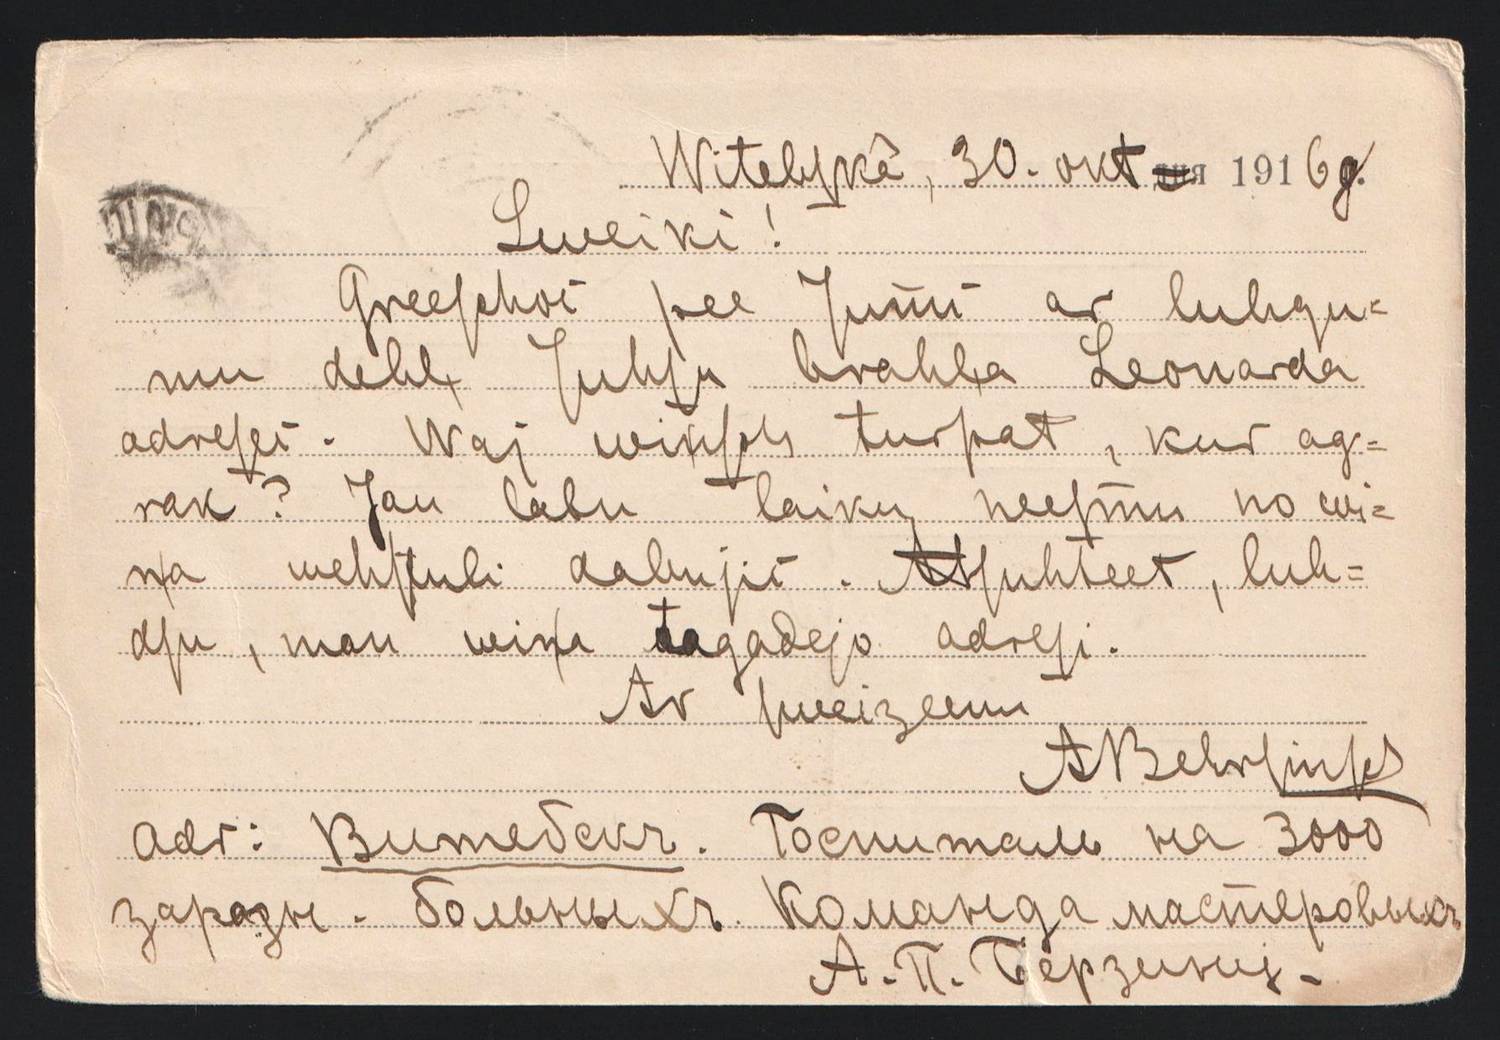 Witebſkâ, 30. okt дня 1916 g.
Sweiki!
Greeſchos pee Jums ar luhgu=
mu dehļ Juhſu brahļa Leonarda
adreſes. Waj wiņſch turpat, kur ag=
rak? Jau labu laiku neeſmu no wi=
ņa wehſtuli dabujis. Atſuhteet, luh=
dſu, man wiņa tagadejo adreſi.
Ar ſweizeenu
ABehrſinſch
Adr: Витебскъ. Госпиталь на 3000
заразн. больныхъ. Команда мастеровыхъ
А. П. Берзинш.